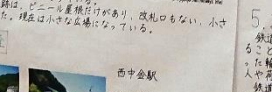 跡は、ビニール屋根だけがあり、改札口もない、小さ
た。現在は小さな広場になっている。
西中金駅
5.
鉄道
ること
った輪
鉄